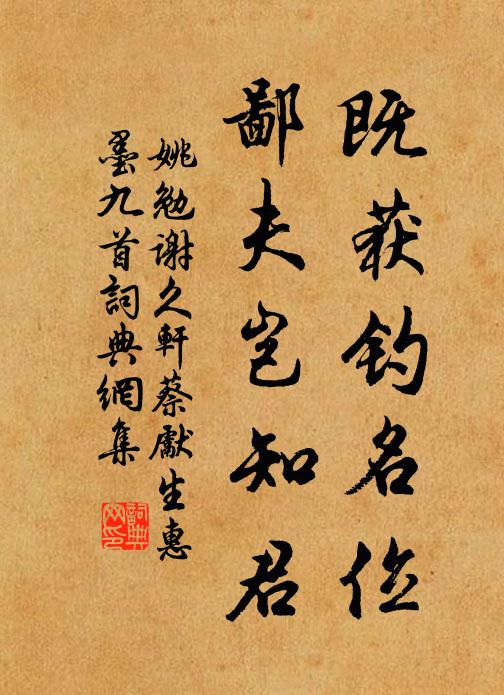 既获钓名俭
鄙夫岂知君
姚勉谢久軒蔡獻生惠
墨九首詞典網集
詞典
网印